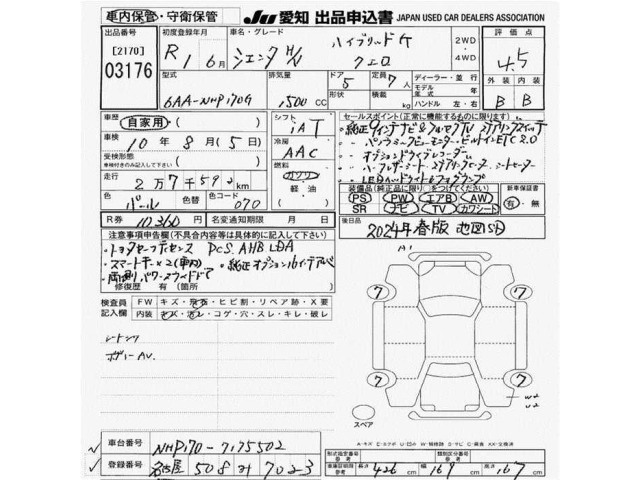 車内保管・守衛保管 JU 愛知 出品申込書 JAPAN USED CAR DEALERS ASSOCIATION
出品番号 初度登録年月 車名・グレード 評価点
[2170] R 1年 6月 シエンタ H/V ハイブリッドG 2WD・4WD 4.5
03176 クエロ
型式 排気量 ドア 5 定員 7人 ディーラー・並行 外装 内装
形状 積載 kg モデル年式 年
6AA-NHP170G 1500 CC ハンドル 左・右 B B
車歴 自家用 シフト セールスポイント(正常に機能するものに限ります)
車検 10年 8月(5日) iAT ・純正9インチナビ&フルセグTV ステアリングスイッチ
受検形態 冷房 ・パノラミックビューモニター・ビルトインETC2.0
車検付きのみ記入 AAC ・オプションドライブレコーダー
走行 2万7千592km 燃料 ガソリン 軽油
・LEDヘッドライト&フォグランプ
色 パール 色替 カラーNo. 070 装備品(純正品に限り○をつけてください) 新車保証書
PS PW エアB AW 有・無
SR ナビ TV カワシート
R券 名変通期限 月 日 後日品
注意事項申告欄(不具合内容等は具体的に記入) 2024年春版 地図SD
・トヨタセーフティセンス PCS、AHB LDA
・スマートキー×2(車内) ・純正オプション16インチアルミ
・両側パワースライドドア
修復歴 有(箇所 )
検査員記入欄 FW キズ・飛石・ヒビ割・リペア跡・X要
内装 キズ・汚レ・コゲ・穴・スレ・キレ・破レ
ボデーAV.
A1
7 7
7 7
W2
U2
スペア
車台番号 NHP170-7175502
登録番号 名古屋 508 70-23
車検証期間参考 長さ 426 cm 幅 169 cm 高さ 167 cm